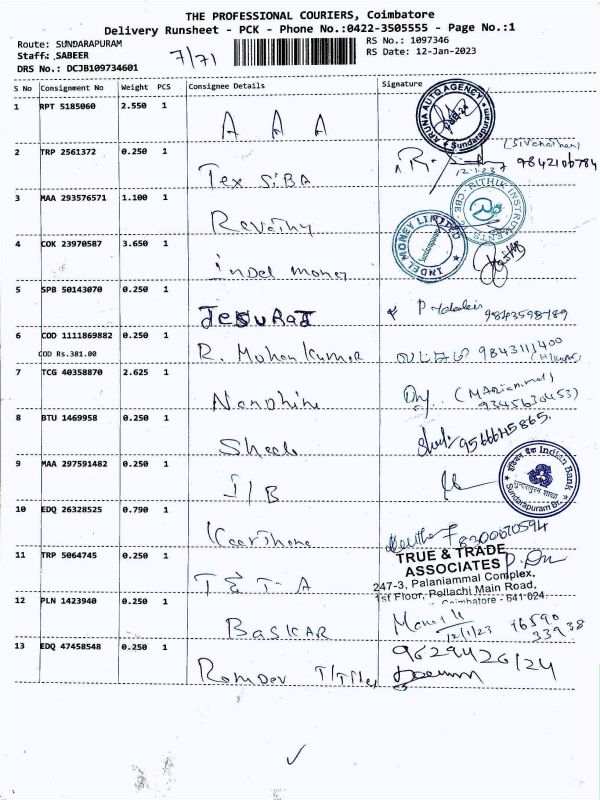 THE PROFESSIONAL COURIERS, Coimbatore
Delivery Runsheet - PCK - Phone No.:0422-3505555 - Page No.:1
Route: SUNDARAPURAM
RS No.: 1097346
Staff: SABEER
7/71
RS Date: 12-Jan-2023
DRS No.: DCJB109734601
S No Consignment No Weight PCS Consignee Details Signature
1 RPT 5185060 2.550 1 A A A
ARUNA AUTO AGENCY Sundarapuram
2 TRP 2561372 0.250 1 Tex SiBA
12/1/23 9842106784
3 MAA 293576571 1.100 1 Revathy
RITHIK INSTRUMENTS CBE
4 COK 23970587 3.650 1 indel money
INDEL MONEY LIMITED
5 SPB 50143070 0.250 1 JESURAJ
9843598789
6 COD 1111869882 0.250 1 R. Mohan Kumar
COD Rs.381.00
9843111400
7 TCG 40358870 2.625 1 Nandhini
9345630453)
8 BTU 1469958 0.250 1
9566645865
9 MAA 297591482 0.250 1 I/B
इंडियन बैंक Indian Bank
Sundarapuram Br.
10 EDQ 26328525 0.790 1 Keerthana
8300670594
11 TRP 5064745 0.250 1 T & T-A
TRUE & TRADE
ASSOCIATES
247-3, Palaniammal Complex,
1st Floor, Pollachi Main Road,
Coimbatore - 641 024
12 PLN 1423940 0.250 1 BASKAR
12/1/23 16590
33938
13 EDQ 47458548 0.250 1 Ramdev T/Tiles
9629426124